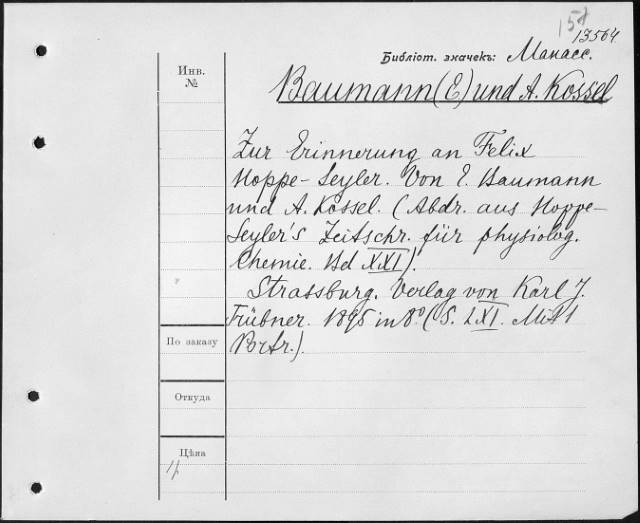 15
13564
Библіот. значекъ: Манасс.
Инв.
№
Baumann (E) und A. Kossel
Zur Erinnerung an Felix
Hoppe-Seyler. Von E. Baumann
und A. Kossel. (Abdr. aus Hoppe-
Seyler's Zeitschr. für physiolog.
Chemie. Bd XXI).
Strassburg. Verlag von Karl J.
Trübner. 1895 in 8° (S. LXI. Mit 1
Portr.).
По заказу
Откуда
Цѣна